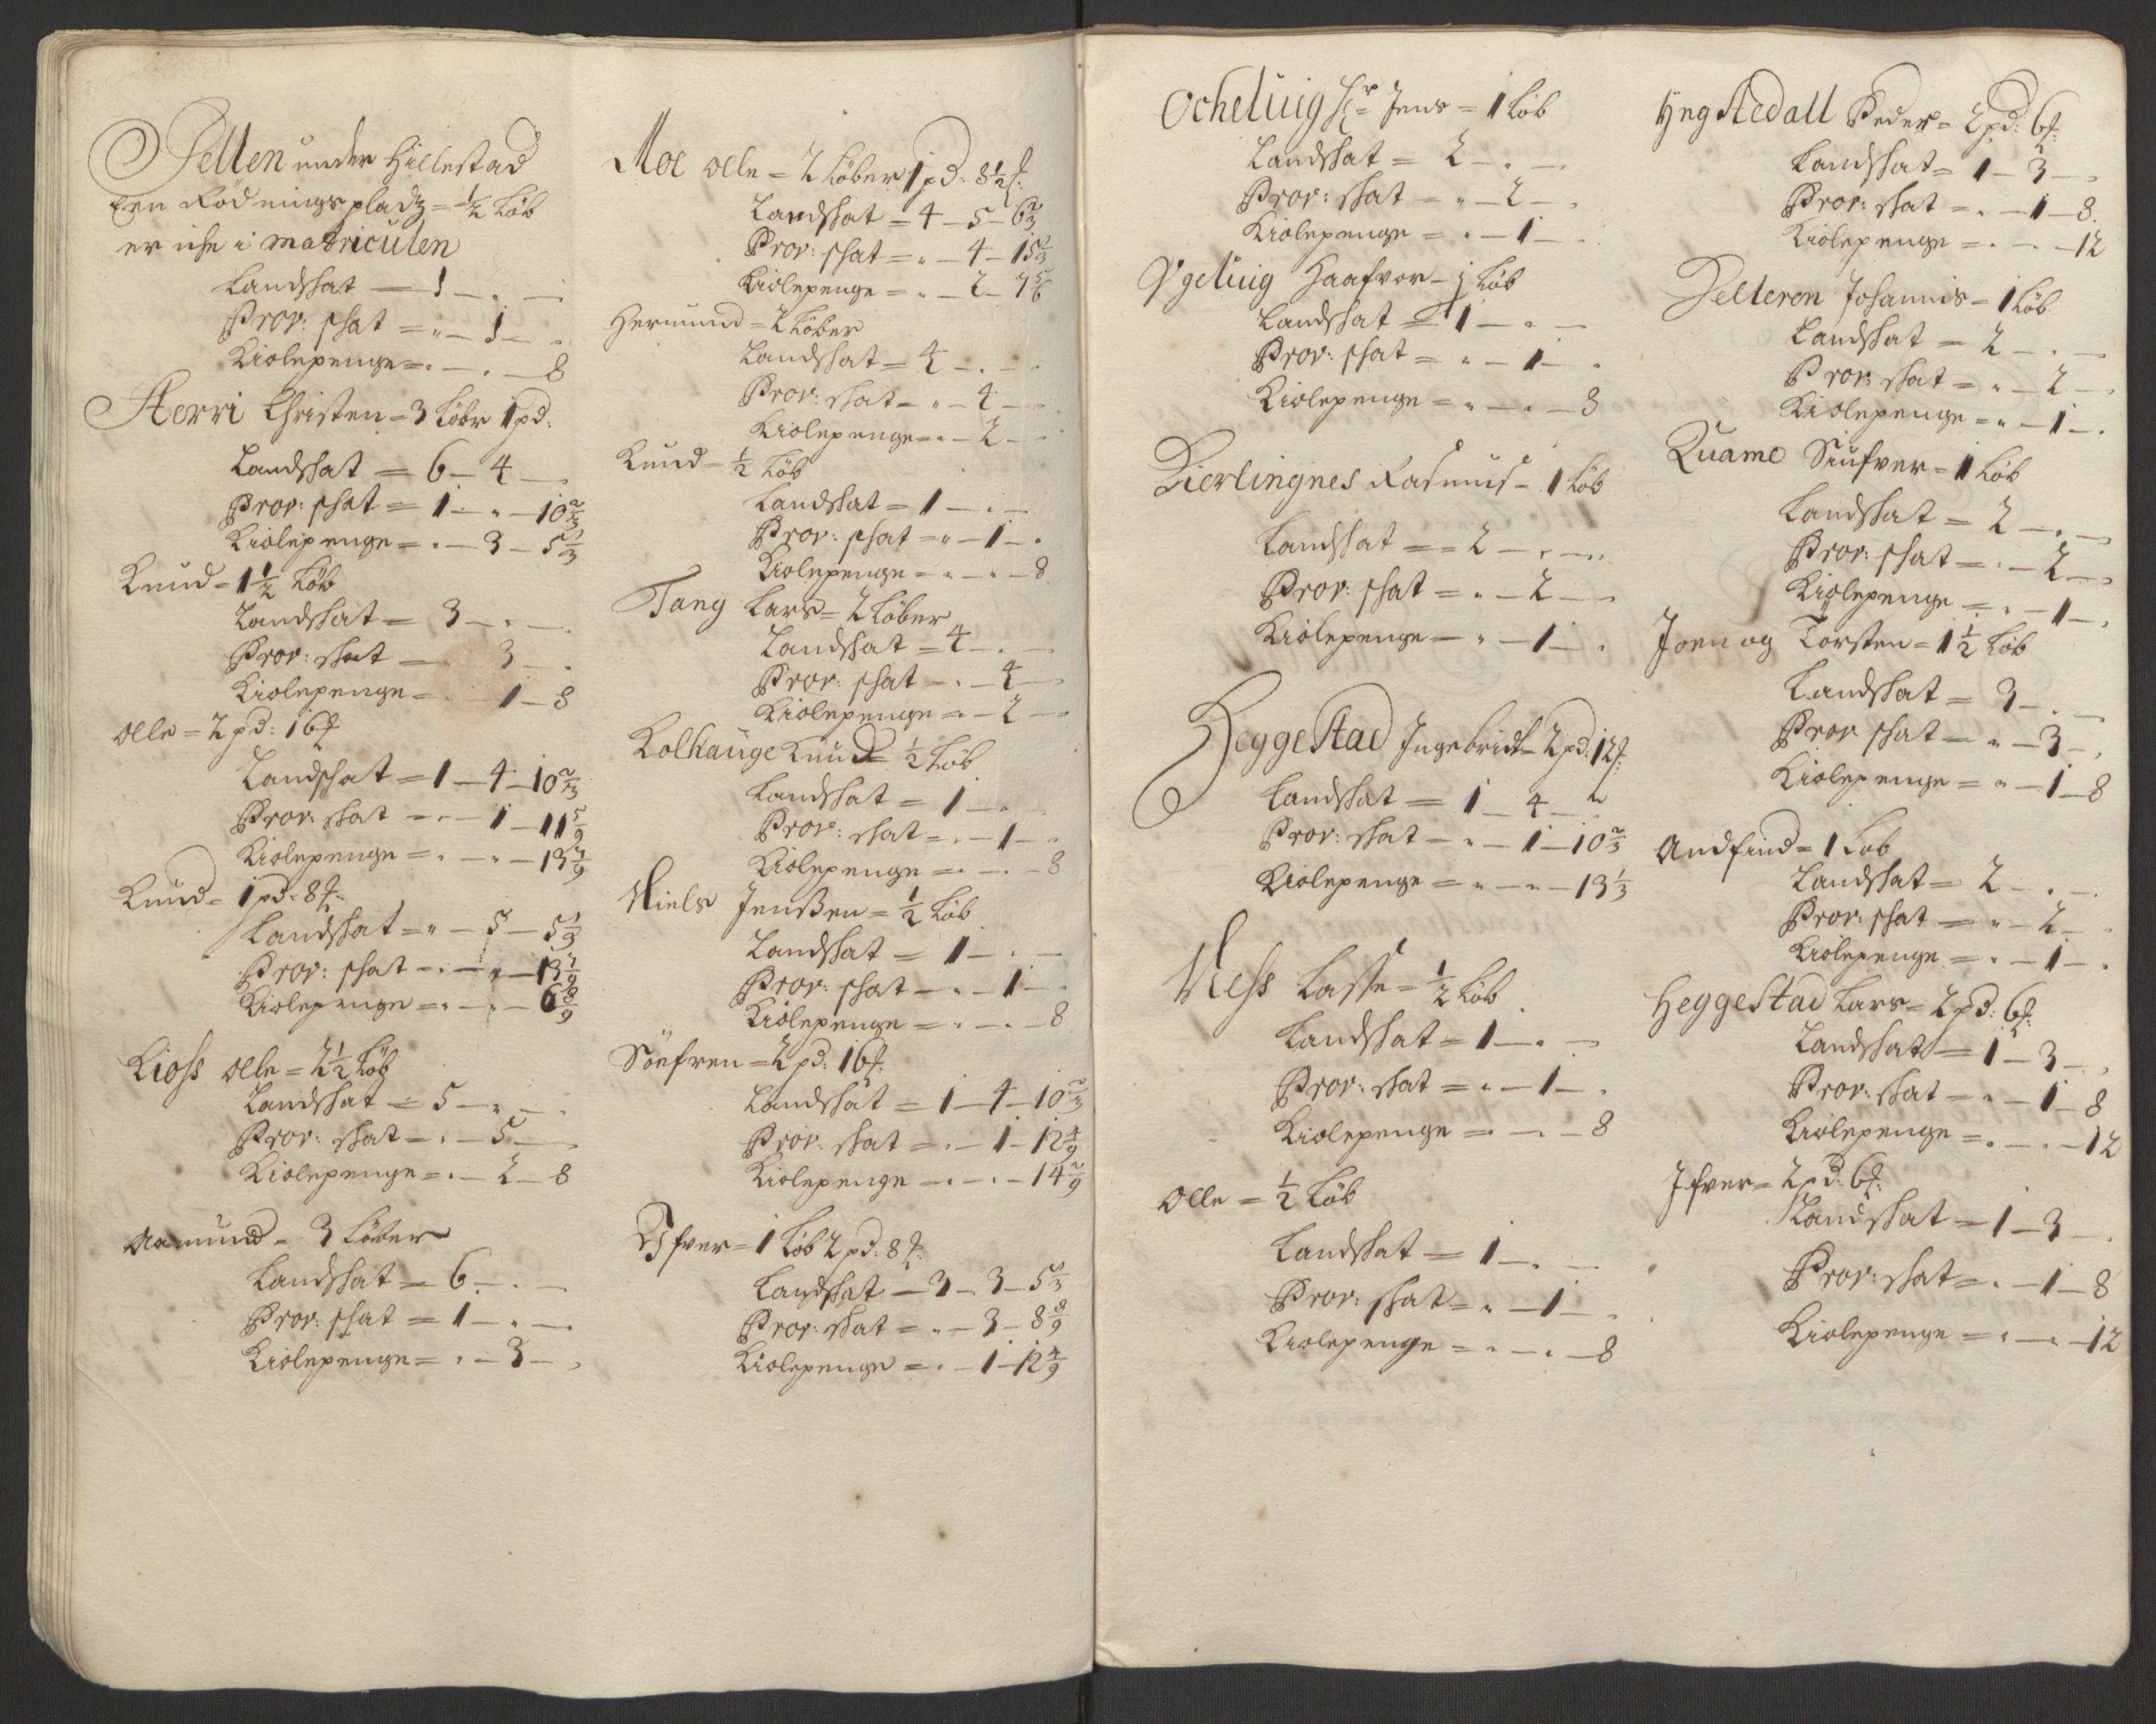 Sellen under Hillestad
Een Rödnings pladz = ½ Löb
er iche i matriculen
Landskat — 1 — . —
Prov: skat = " — 1 — .
Kiolepenge = . — . — 8
Aerri Christen = 3 Löbr 1 pd:
Landskat = 6 — 4 — .
Prov: skat = 1 — " — 10 2/3
Kiolepenge = . — 3 — 5 1/3
Knud = 1½ Löb
Landskat = 3 — . — .
Prov: skat — 3 — .
Kiolepenge = . 1 — 8
Olle = 2 pd: 16
Landskat = 1 — 4 — 10 2/3
Prov: skat — . — 1 — 11 5/9
Kiolepenge = . — " — 13 7/9
Knud = 1 pd: 8
Landskat = " — 5 — 5 1/3
Prov: skat — . — " — 13 7/9
Kiolepenge = . — " — 6 8/9
Kioss Olle = 2½ Löb
Landskat = 5 — " — .
Prov: skat — . — 5 — .
Kiolepenge = . — 2 — 8
Aamund = 3 Löber
Landskat = 6 — . —
Prov: skat = 1 — " — .
Kiolepenge = . — 3 — .
Moe Olle = 2 Löber 1 pd: 8½
Landskat = 4 — 5 — 6 2/3
Prov: skat = " — 4 — 15 1/3
Kiolepenge = " — 2 — 7 5/6
Hermund = 2 Löber
Landskat = 4 — . — .
Prov: skat — " — 4 — .
Kiolepenge = . — 2 — .
Knud = ½ Löb
Landskat = 1 — . —
Prov: skat = " — 1 — .
Kiolepenge = " — . — 8
Tang Lars = 2 Löber
Landskat = 4 — . —
Prov: skat — . — 4 —
Kiolepenge = . — 2 —
Kolhauge Knud = ½ Löb
Landskat = 1 — . —
Prov: skat = . — 1 — .
Kiolepenge = . — . — 8
Niels Jenssen = ½ Löb
Landskat = 1 — . —
Prov: skat — . — 1 — .
Kiolepenge = . — . — 8
Söefren = 2 pd: 16
Landskat = 1 — 4 — 10 2/3
Prov: skat = . — 1 — 12 4/9
Kiolepenge — . — . — 14 2/9
Ifver = 1 Löb 2 pd: 8
Landskat — 3 — 3 — 5 1/3
Prov: skat = " — 3 — 8 8/9
Kiolepenge = . — 1 — 12 4/9
Ocheluig Hr Jens = 1 Löb
Landskat = 2 — . —
Prov: skat = " — 2 — .
Kiolepenge = . — 1 — .
Ygeluig Haafvor — ½ Löb
Landskat = 1 — . —
Prov: skat = " — 1 — .
Kiolepenge = " — . — 8
Kierlingnes Rasmus = 1 Löb
Landskat = 2 — . — .
Prov: skat = . — 2 — .
Kiolepenge — " — 1 — .
Heggestad Ingebridt = 2 pd: 12
Landskat = 1 — 4 — "
Prov: skat — " — 1 — 10 2/3
Kiolepenge = " — " — 13 1/3
Ness Lasse = ½ Löb
Landskat = 1 — . —
Prov: skat = " — 1 — .
Kiolepenge = . — . — 8
Olle = ½ Löb
Landskat = 1 — . —
Prov: skat = " — 1 — .
Kiolepenge = " — . — 8
Yngstedall Peder = 2 pd: 6
Landskat = 1 — 3 — .
Prov: skat = . — 1 — 8
Kiolepenge = . — . — 12
Selteren Johannis — 1 Löb
Landskat — 2 — . —
Prov: skat = " — 2 — .
Kiolepenge = " — 1 — .
Quame Siufver = 1 Löb
Landskat = 2 — . —
Prov: skat = . — 2 — .
Kiolepenge = . — 1 — .
Joen og Torsten = 1½ Löb
Landskat = 3 — . —
Prov: skat — " — 3 — .
Kiolepenge = " — 1 — 8
Andfind = 1 Löb
Landskat = 2 — . —
Prov: skat = " — 2 — .
Kiolepenge = . — 1 — .
Heggestad Lars = 2 pd: 6
Landskat = 1 — 3 — .
Prov: skat — " — 1 — 8
Kiolepenge = . — . — 12
Ifver = 2 pd: 6
Landskat = 1 — 3 — .
Prov: skat = . — 1 — 8
Kiolepenge = . — . — 12